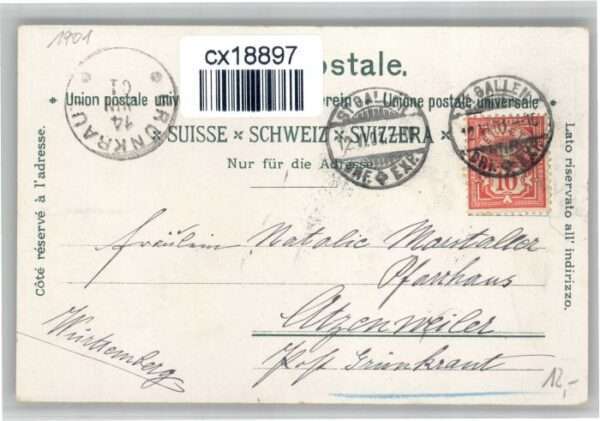 1901
cx18897
Postale.
Union postale universelle Weltpostverein Unione postale universale
SUISSE × SCHWEIZ × SVIZZERA
Nur für die Adresse
Côté réservé à l'adresse.
Lato riservato all' indirizzo.
GRÜNKRAUT
14
01
ST. GALLEN
BRF. EXP.
ST. GALLEN
BRF. EXP.
10
Fräulein Natalie
Pfarrhaus
Atzenweiler
Post Grünkraut
Württemberg
12,-